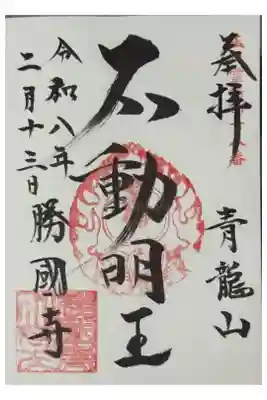 奉拝
青龍山
不動明王
勝國寺
令和八年
二月十三日